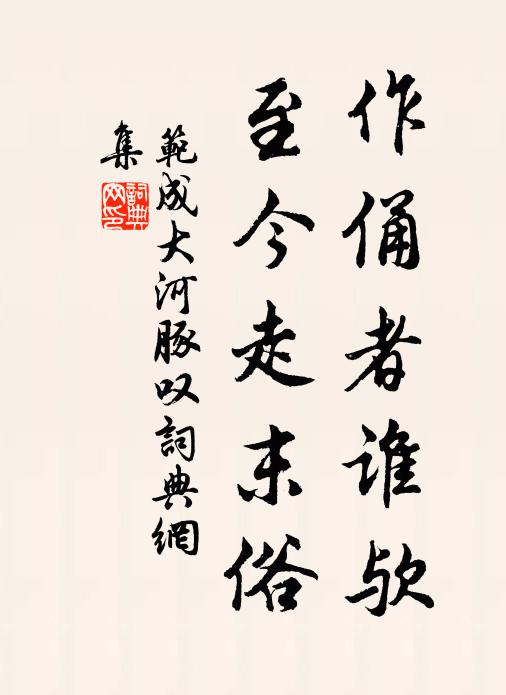 作俑者谁欤
至今走末俗
範成大河豚叹詞典網
集
詞典
网印